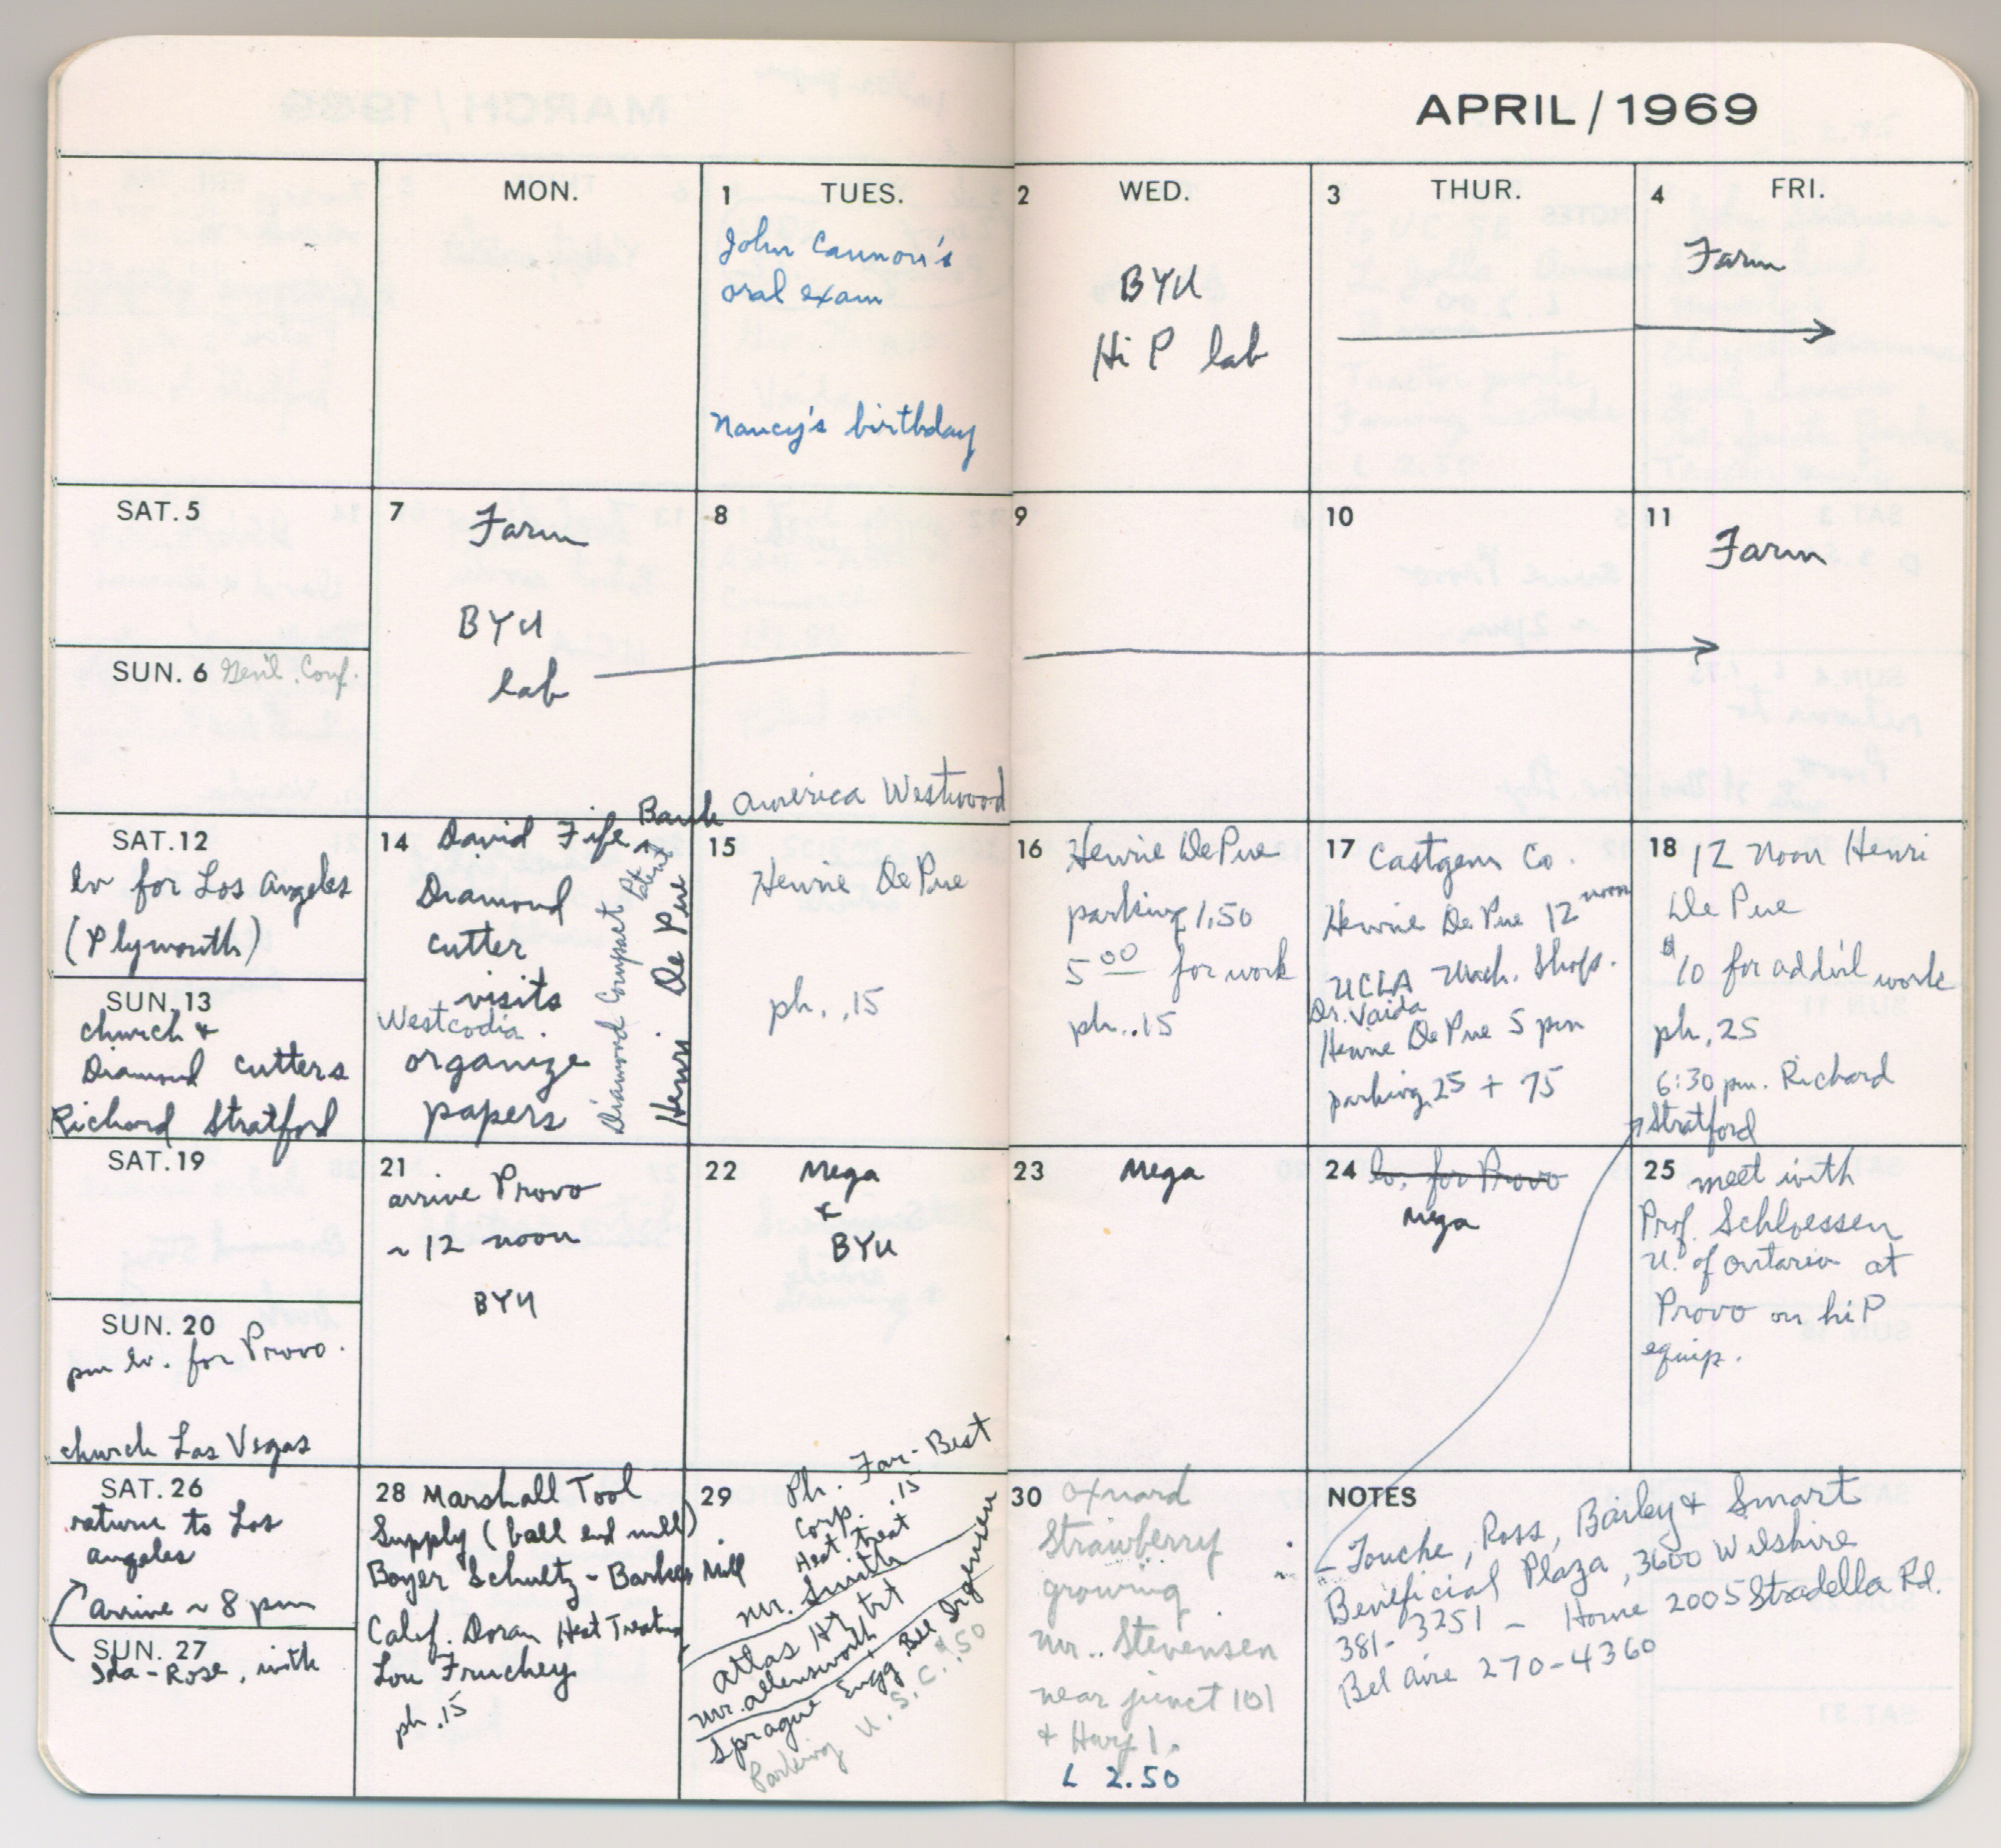 APRIL / 1969
MON.
1 TUES.
John Cannon's
oral exam
Nancy's birthday
2 WED.
BYU
Hi P lab
3 THUR.
4 FRI.
Farm
SAT. 5
SUN. 6 Gen'l. Conf.
7 Farm
BYU
lab
8
9
10
11 Farm
SAT. 12
lv for Los Angeles
(Plymouth)
SUN. 13
church &
Diamond cutters
Richard Stratford
14 David Fife, Bank America Westwood
Diamond
cutter
visits
Westcodia.
organize
papers
Diamond Compact Pt. Patent
Henri De Pue
15
Henrie De Pue
ph. .15
16 Henrie De Pue
parking 1.50
5 00 for work
ph. .15
17 Castgem Co.
Henrie De Pue 12 noon
UCLA Mach. Shop.
Dr. Vaida
Henrie De Pue 5 pm
parking .25 + 75
18 12 noon Henri
De Pue
$10 for add'l work
ph .25
6:30 pm. Richard
Stratford
SAT. 19
SUN. 20
pm lv. for Provo.
church Las Vegas
21
arrive Provo
~ 12 noon
BYU
22 Mega
&
BYU
23 Mega
24 lv. for Provo
Mega
25 meet with
Prof. Schloessen
U. of Ontario at
Provo on hi P
equip.
SAT. 26
return to Los
Angeles
Arrive ~ 8 pm
SUN. 27
Ida-Rose, with
28 Marshall Tool
Supply (ball end mill)
Boyer Schultz - Barker Mill
Calif. Doran Heat Treating
Lou Fruchey
ph .15
29 Ph. Far-Best
Corp. .15
Heat treat
Mr. Smith
Atlas Ht trt
Mr. Allensworth
Sprague Engg Bill Jorgensen
Parking U.S.C. .50
30 Oxnard
Strawberry
growing
Mr.. Stevensen
near junct 101
& Hwy 1.
L 2.50
NOTES
Touche, Ross, Bailey & Smart
Beneficial Plaza, 3600 Wilshire
381-3251 - Home 2005 Stradella Rd.
Bel Aire 270-4360